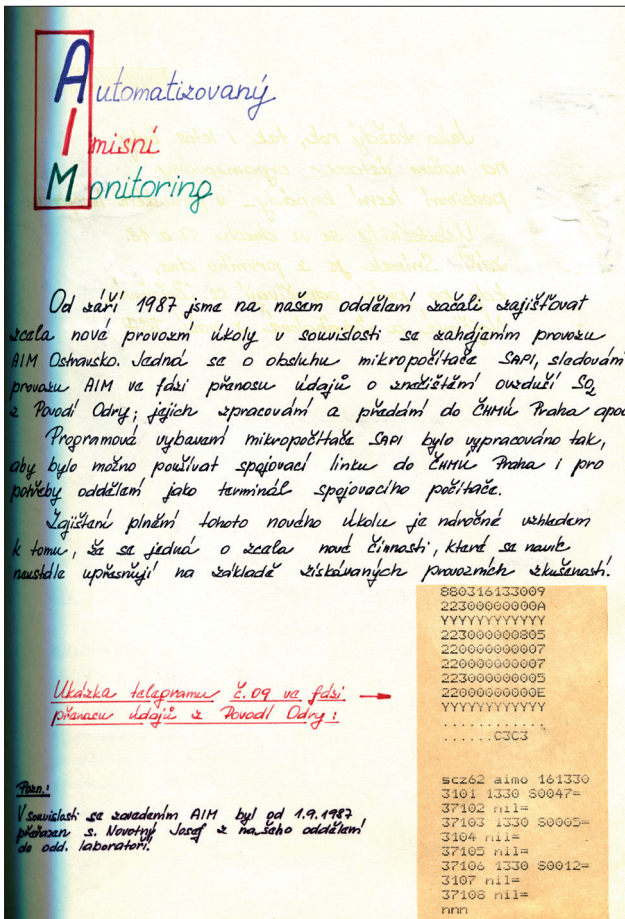 Automatizovaný
Imisní
Monitoring
Od září 1987 jsme na našem oddělení začali zajišťovat
zcela nové provozní úkoly v souvislosti se zahájením provozu
AIM Ostravsko. Jedná se o obsluhu mikropočítače SAPI, sledování
provozu AIM ve fázi přenosu údajů o znečištění ovzduší SO2
z Povodí Odry; jejich zpracování a předání do ČHMÚ Praha apod
Programové vybavení mikropočítače SAPI bylo vypracováno tak,
aby bylo možno používat spojovací linku do ČHMÚ Praha i pro
potřeby oddělení jako terminál spojovacího počítače.
Zajištění plnění tohoto nového úkolu je náročné vzhledem
k tomu, že se jedná o zcela nové činnosti, které se navíc
neustále upřesňují na základě získávaných provozních zkušeností.
880316133009
22300000000A
YYYYYYYYYYYY
223000000805
220000000007
220000000007
223000000005
22000000000E
YYYYYYYYYYYY
............
......C3C3
Ukázka telegramu č.09 ve fázi
přenosu údajů z Povodí Odry:
scz62 aimo 161330
3101 1330 S0047=
37102 nil=
37103 1330 S0005=
3104 nil=
37105 nil=
37106 1330 S0012=
3107 nil=
37108 nil=
nnn
Pozn.:
V souvislosti se zavedením AIM byl od 1.9.1987
přeřazen s. Novotný Josef z našeho oddělení
do odd. laboratoří.